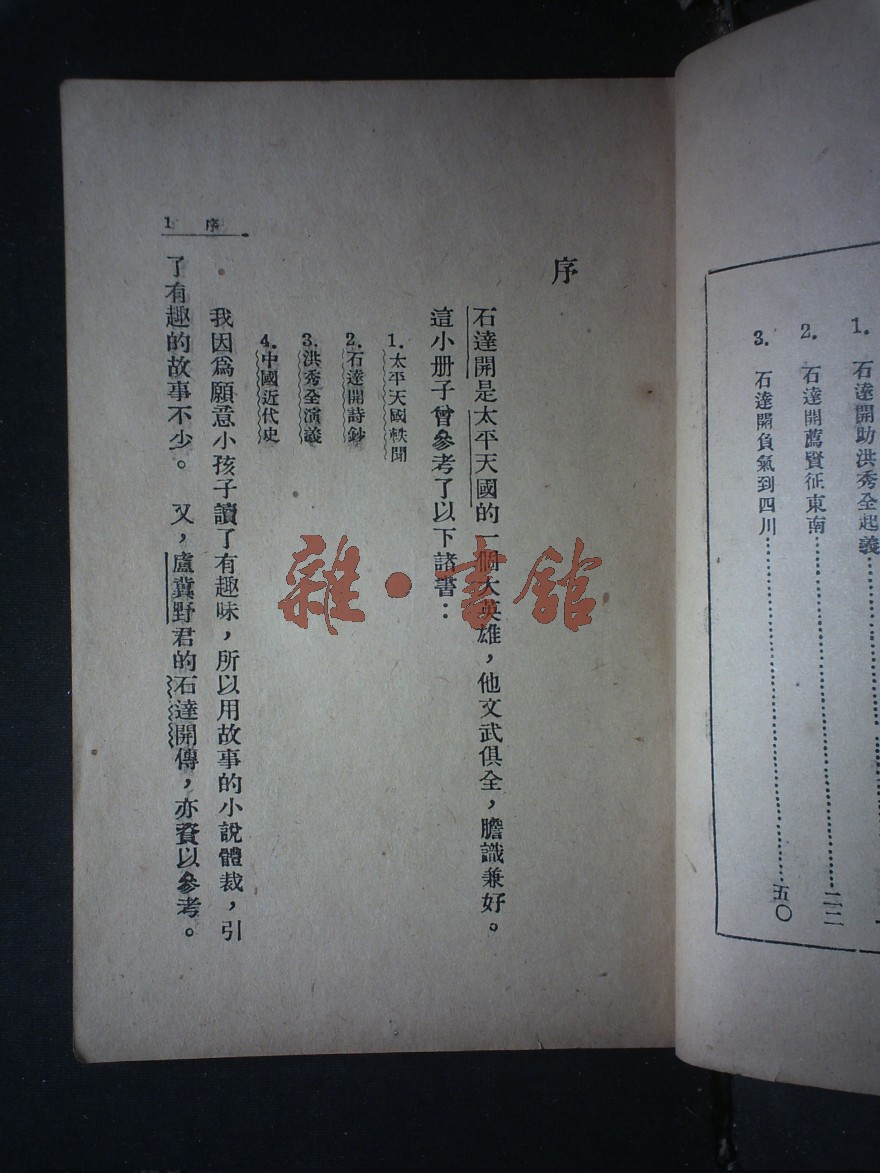 1. 石達開助洪秀全起義
2. 石達開薦賢征東南……二二
3. 石達開負氣到四川……五〇
序
石達開是太平天國的一個大英雄，他文武俱全，膽識兼好。
這小册子曾參考了以下諸書：
1. 太平天國軼聞
2. 石達開詩鈔
3. 洪秀全演義
4. 中國近代史
我因爲願意小孩子讀了有趣味，所以用故事的小說體裁，引
了有趣的故事不少。 又，盧冀野君的石達開傳，亦資以參考。
1 序
雜·書館